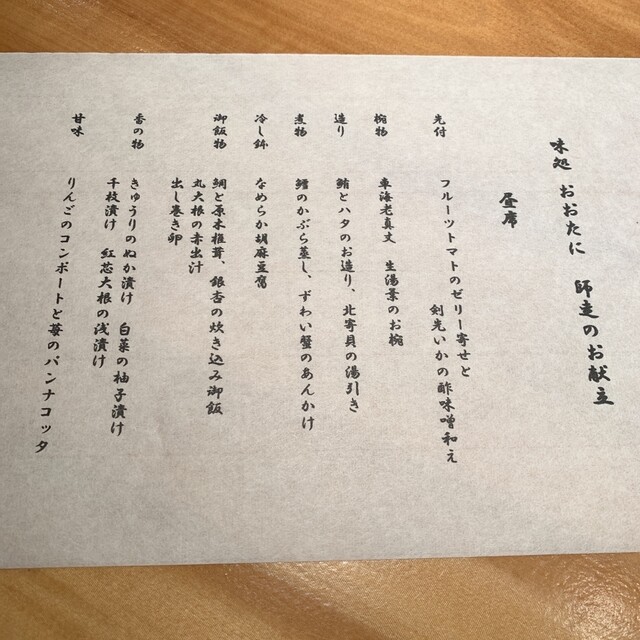 味処 おおたに 師走のお献立
昼席
先付 フルーツトマトのゼリー寄せと
剣先いかの酢味噌和え
椀物 車海老真丈 生湯葉のお椀
造り 鮪とハタのお造り、北寄貝の湯引き
煮物 鱈のかぶら蒸し、ずわい蟹のあんかけ
冷し鉢 なめらか胡麻豆腐
御飯物 鯛と原木椎茸、銀杏の炊き込み御飯
丸大根の赤出汁
出し巻き卵
香の物 きゅうりのぬか漬け 白菜の柚子漬け
千枚漬け 紅芯大根の浅漬け
甘味 りんごのコンポートと苺のパンナコッタ